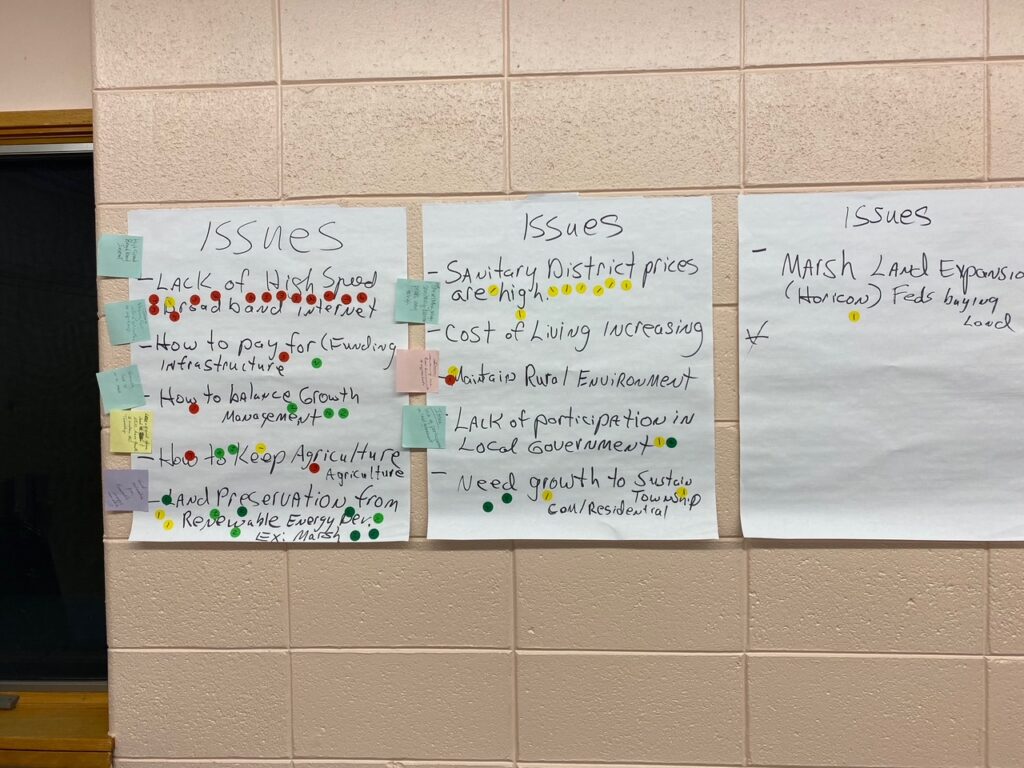 Issues
- Lack of High Speed
Broadband Internet
- How to pay for (Funding
Infrastructure
- How to balance Growth
Management
- How to Keep Agriculture
Agriculture
- Land Preservation from
Renewable Energy Dev.
Ex: Marsh
Issues
- Sanitary District prices
are high.
- Cost of Living Increasing
- Maintain Rural Environment
- Lack of participation in
Local Government
- Need growth to Sustain
Township
Com/Residential
Issues
- Marsh Land Expansio
(Horicon) Feds buying
Land